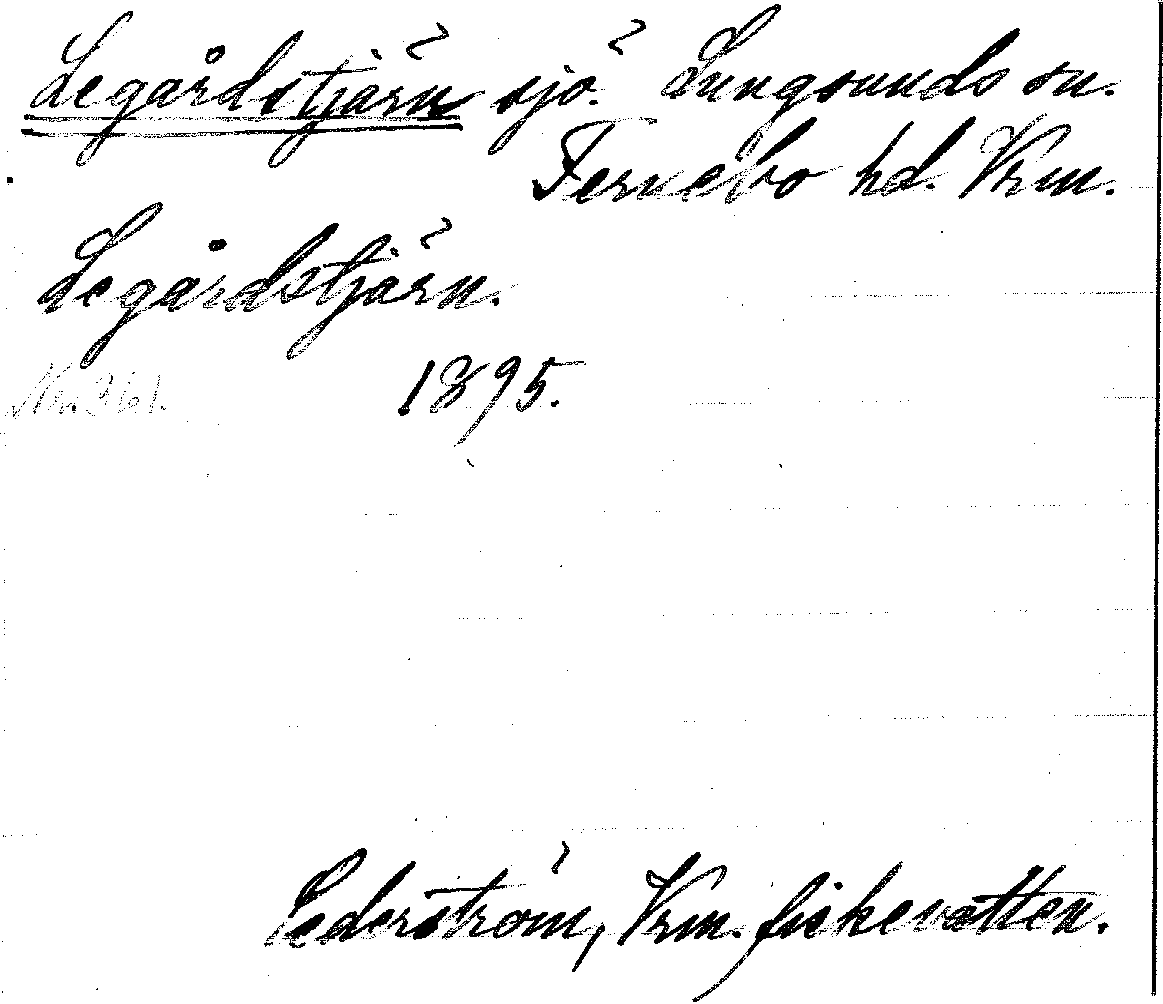 Legårdstjärn sjö. Lungsunds sn.
Fernebo hd. Vrm.
Legårdstjärn.
Nr. 361. 1895.
Cederström, Vrm. fiskevatten.